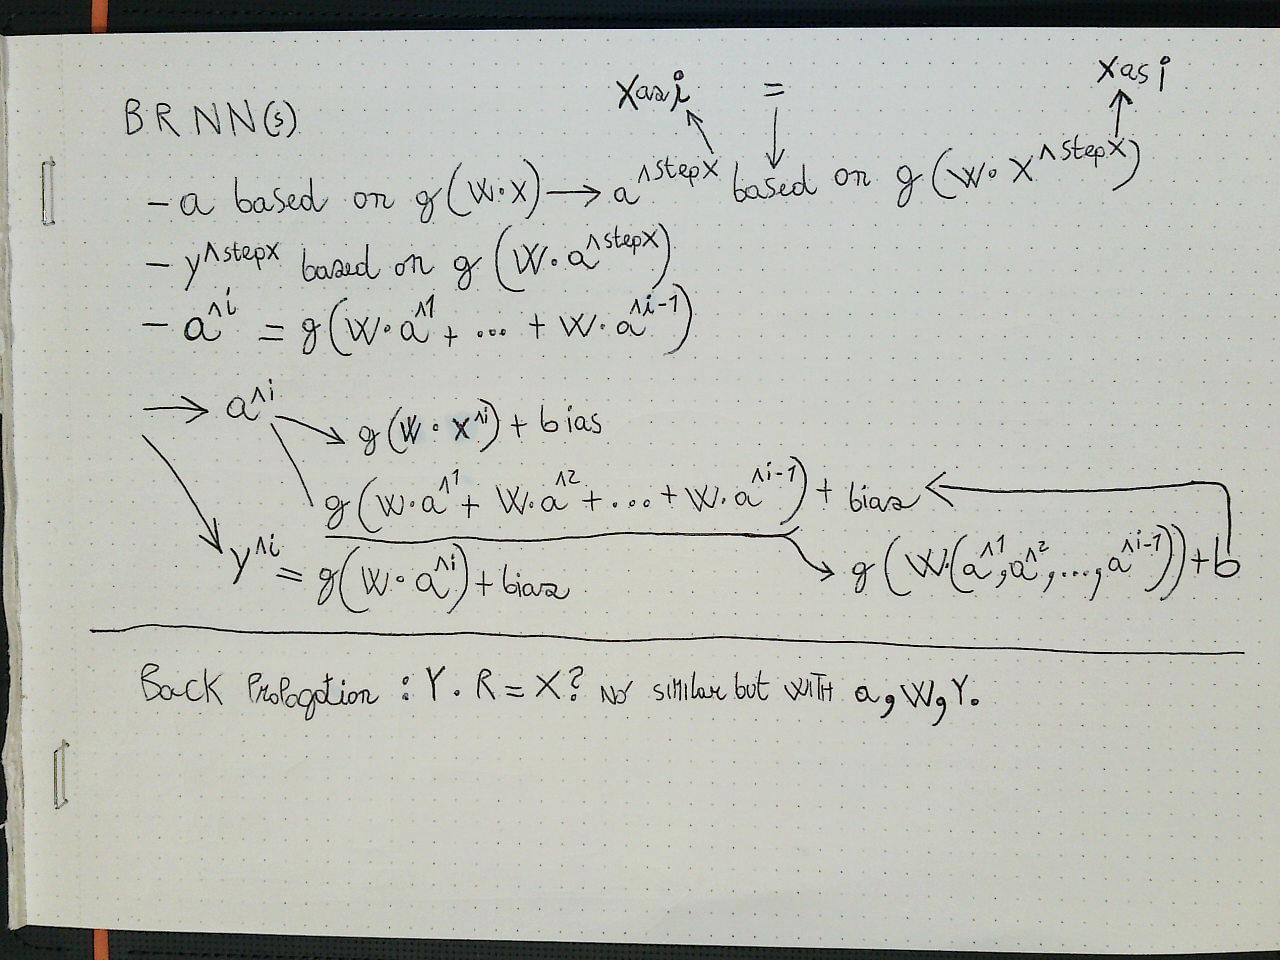 X as i = X as i
BRNN(s)
- a based on g(W·X) → a^stepX based on g(W·X^stepX)
- y^stepX based on g(W·a^stepX)
- a^i = g(W·a^1 + ... + W·a^i-1)
→ a^i
g(W·X^i) + bias
g(W·a^1 + W·a^2 + ... + W·a^i-1) + bias
y^i = g(W·a^i) + bias
g(W(a^1, a^2, ..., a^i-1)) + b
Back Propagation : Y. R = X? No similar but with a, W, Y.